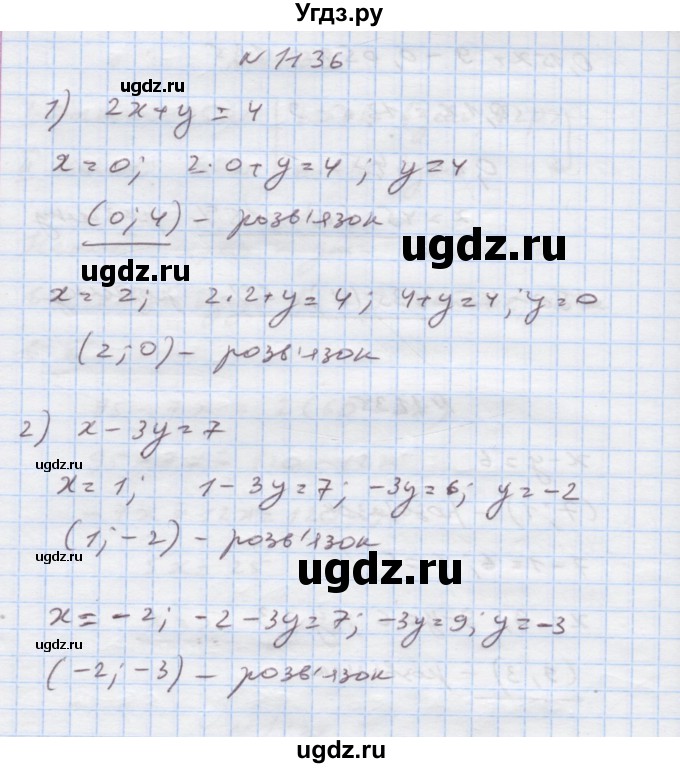 Угдз.ру
N 1136
ugdz.ru
1) 2x+y=4
x=0; 2·0+y=4; y=4
(0;4) - розв'язок
ugdz.ru
ugdz.ru
x=2; 2·2+y=4; 4+y=4; y=0
(2;0) - розв'язок
2) x-3y=7
ugdz.ru
x=1; 1-3y=7; -3y=6; y=-2
(1;-2) - розв'язок
ugdz.ru
ugdz.ru
x=-2; -2-3y=7; -3y=9; y=-3
ugdz.ru
(-2;-3) - розв'язок
ugdz.ru
ugdz.ru